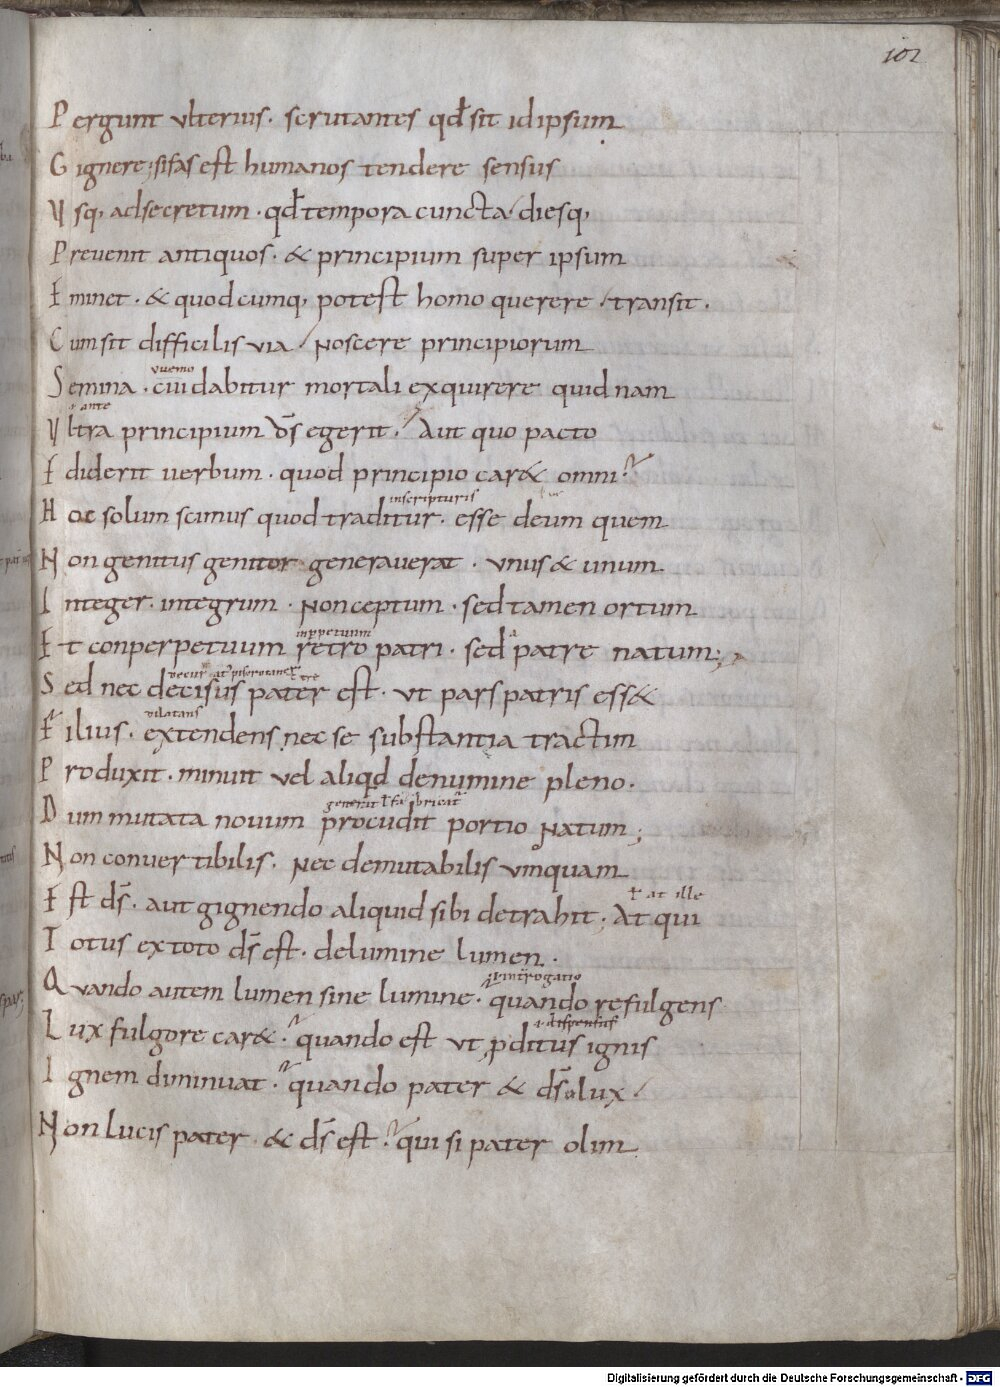 102
Pergunt ulterius. scrutantes qđ sit id ipsum
Gignere; si fas est humanos tendere sensus
Vsq; ad secretum. qđ tempora cuncta diesq;
Prevenit antiquos. & principium super ipsum
Eminet. & quod cumq; potest homo querere transit.
Cum sit difficilis via noscere principiorum
vuemo
Semina. cui dabitur mortali exquirere quid nam
ante
Vltra principium d̄s egerit. Aut quo pacto
Ediderit verbum. quod principio car& omni?
in scripturis
Hoc solum scimus quod traditur. esse deum quem
Non genitus genitor generaverat. unus & unum
Integer. integrum. Non ceptum. sed tamen ortum
Et conperpetuum retro patri. sed a patre natum;
Sed nec decisus pater est. ut pars patris ess&
dilatans
Filius. extendens nec se substantia tractim
Produxit. minuit vel aliqđ de numine pleno.
Dum mutata novum procudit portio Natum;
Non convertibilis. Nec demutabilis umquam
at ille
Est d̄s. aut gignendo aliquid sibi detrahit; At qui
Totus ex toto d̄s est. de lumine lumen.
introgatio
Quando autem lumen sine lumine. quando refulgens
Lux fulgore car&. quando est ut p̱ditus ignis
Ignem diminuat. quando pater & d̄s & lux
Non lucis pater & d̄s est. qui si pater olim
Digitalisierung gefördert durch die Deutsche Forschungsgemeinschaft - DFG